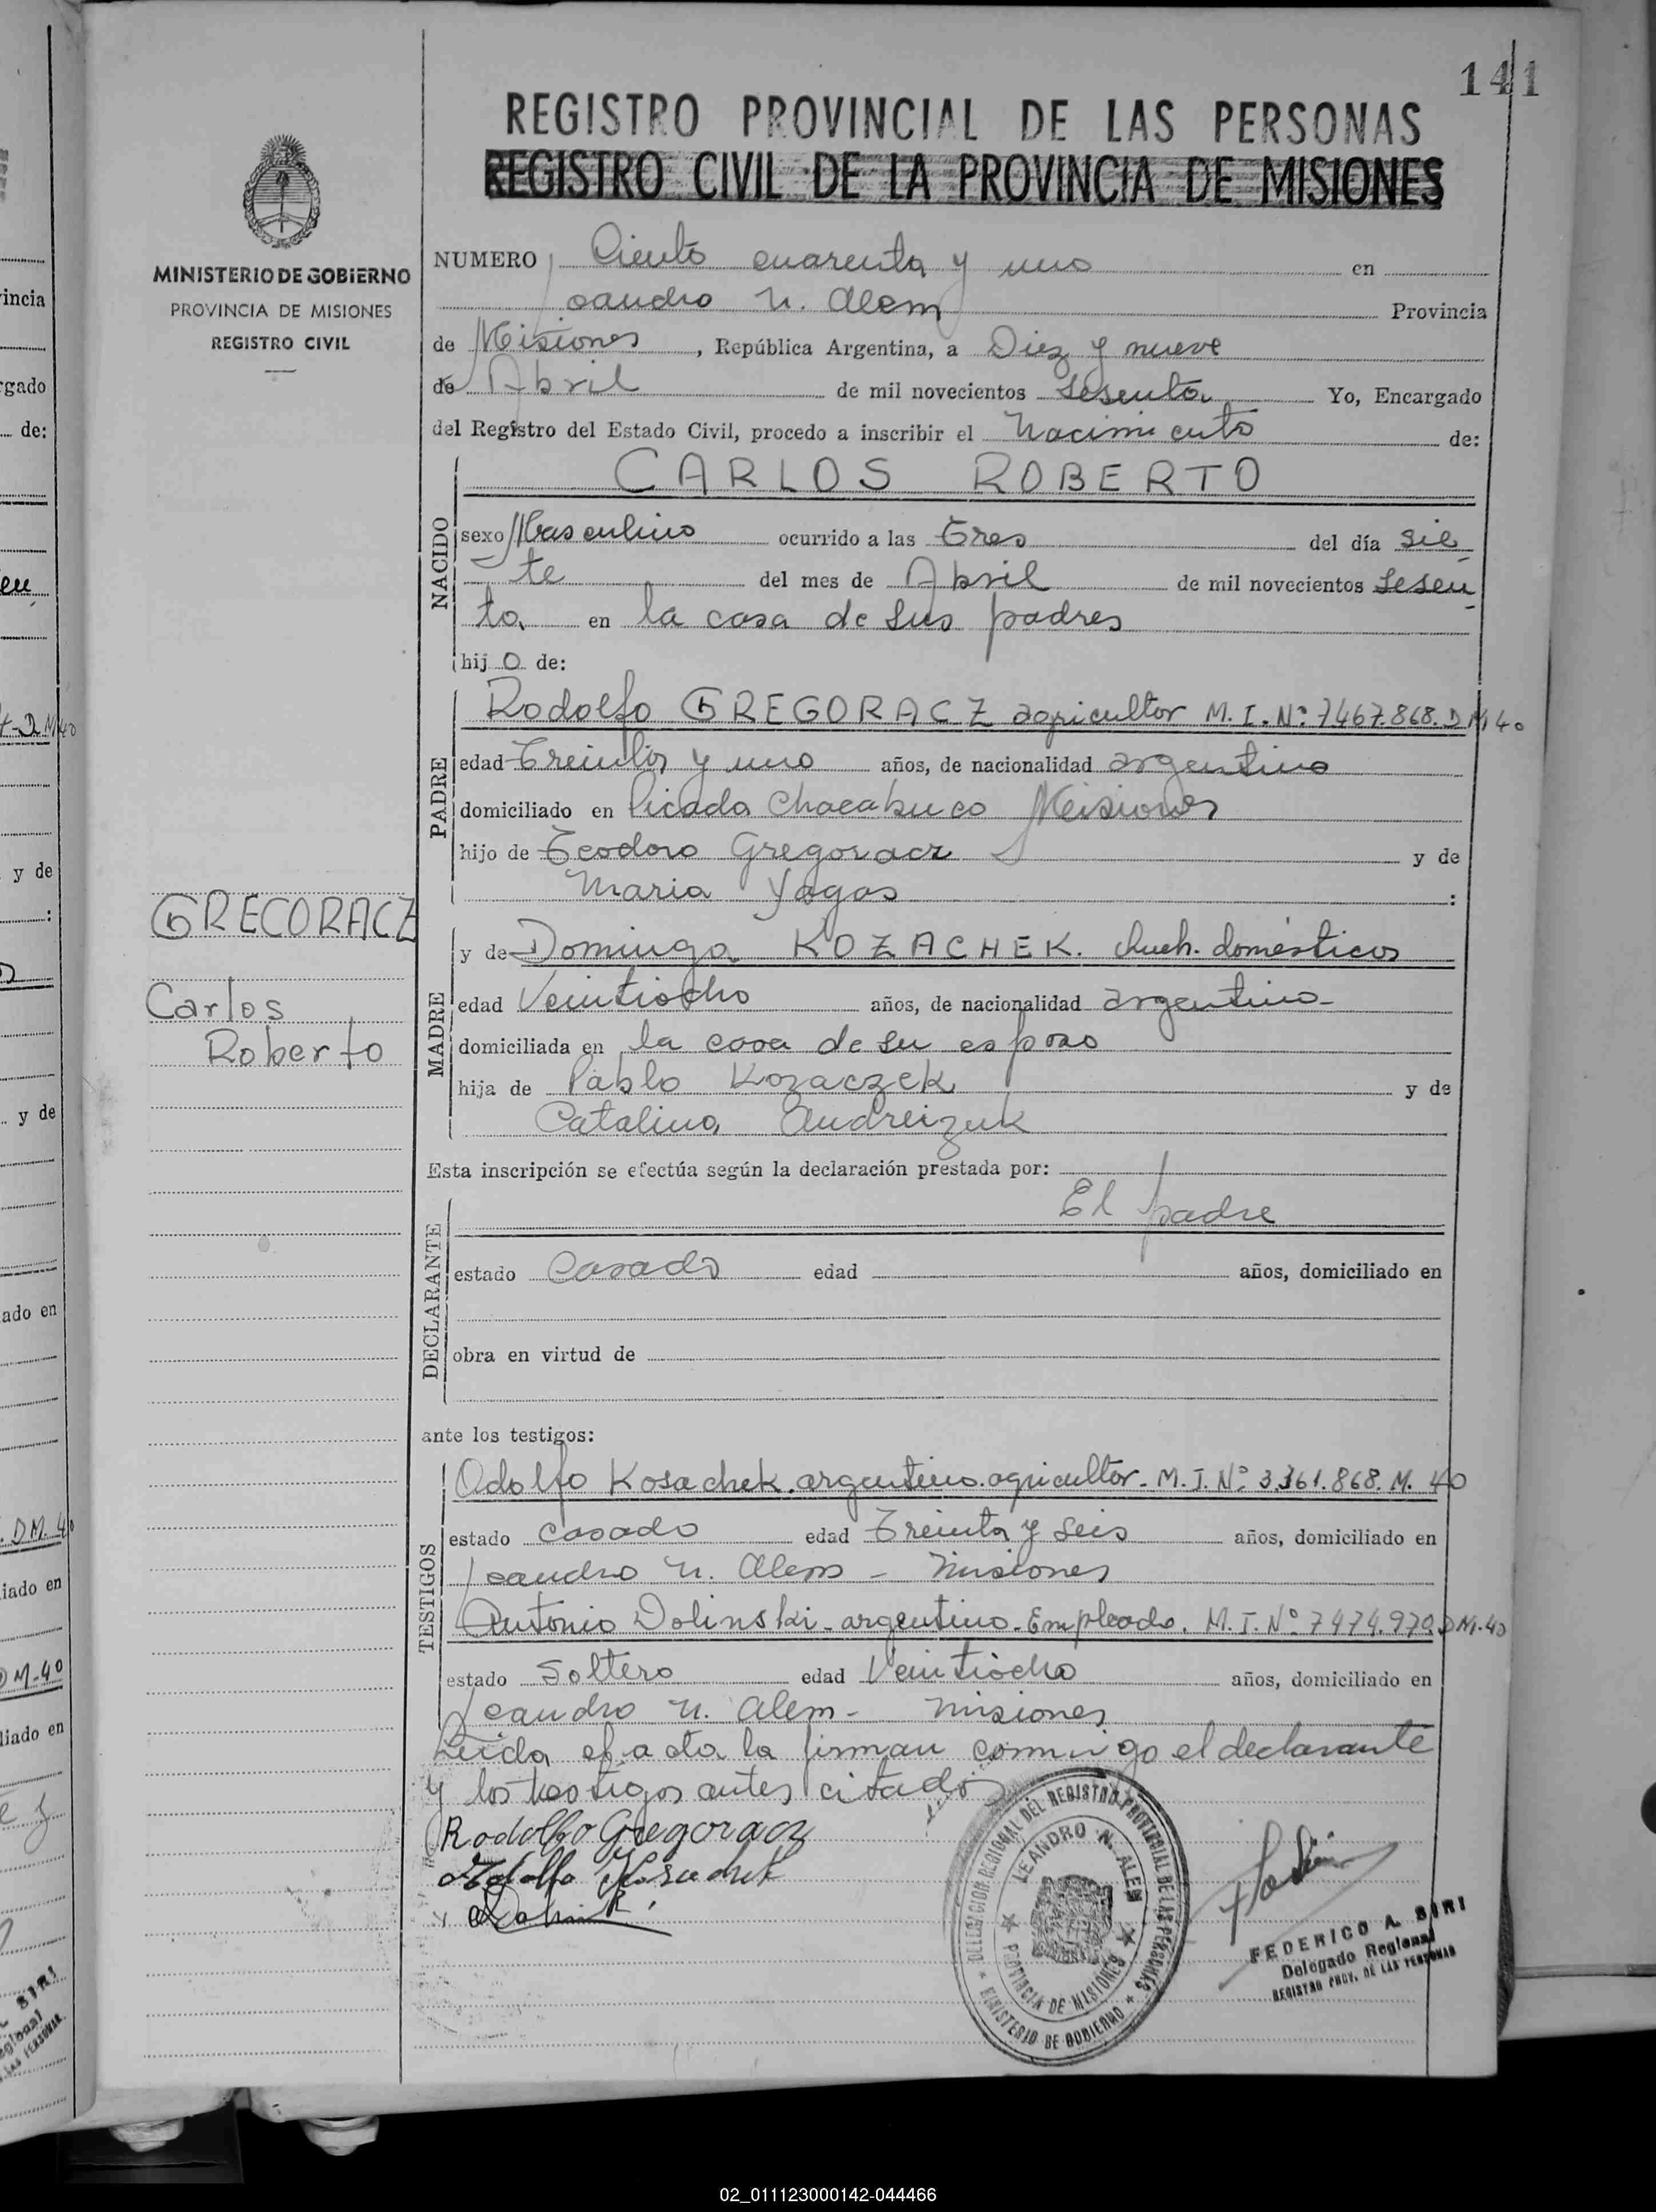 141
REGISTRO PROVINCIAL DE LAS PERSONAS
REGISTRO CIVIL DE LA PROVINCIA DE MISIONES
MINISTERIO DE GOBIERNO
PROVINCIA DE MISIONES
REGISTRO CIVIL
NUMERO Ciento cuarenta y uno en
Leandro N. Alem Provincia
de Misiones, República Argentina, a Diez y nueve
de Abril de mil novecientos Sesenta Yo, Encargado
del Registro del Estado Civil, procedo a inscribir el Nacimiento de:
NACIDO
CARLOS ROBERTO
sexo Masculino ocurrido a las Tres del día sie-
te del mes de Abril de mil novecientos Sesen-
ta en la casa de sus padres
hijo de:
PADRE
Rodolfo GREGORACZ agricultor M. I. Nº: 7467.868. D M 40
edad Treinta y uno años, de nacionalidad argentino
domiciliado en Picada Chacabuco Misiones
hijo de Teodoro Gregoracz y de
Maria Yagas :
GREGORACZ
Carlos
Roberto
MADRE
y de Dominga KOZACHEK. domésticos
edad Veintiocho años, de nacionalidad argentina
domiciliada en la casa de su esposo
hija de Pablo Kozaczek y de
Catalina Andreizuk
Esta inscripción se efectúa según la declaración prestada por:
DECLARANTE
El padre
estado Casado edad años, domiciliado en
obra en virtud de
ante los testigos:
TESTIGOS
Adolfo Kosachek. argentino. agricultor. M. I. Nº 3.361.868. M. 40
estado casado edad Treinta y Seis años, domiciliado en
Leandro N. Alem - Misiones
Antonio Dolinski - argentino - Empleado. M. I. Nº 7474.970 D M. 40
estado Soltero edad Veintiocho años, domiciliado en
Leandro N. Alem - Misiones
Leida el acta la firman conmigo el declarante
y los testigos antes citados
Rodolfo Gregoracz
Adolfo Kosachek
DELEGACION REGIONAL DEL REGISTRO PROVINCIAL DE LAS PERSONAS
MINISTERIO DE GOBIERNO
LEANDRO N. ALEM
PROVINCIA DE MISIONES
FEDERICO A. SIRI
Delegado Regional
REGISTRO PROV. DE LAS PERSONAS
02_011123000142-044466